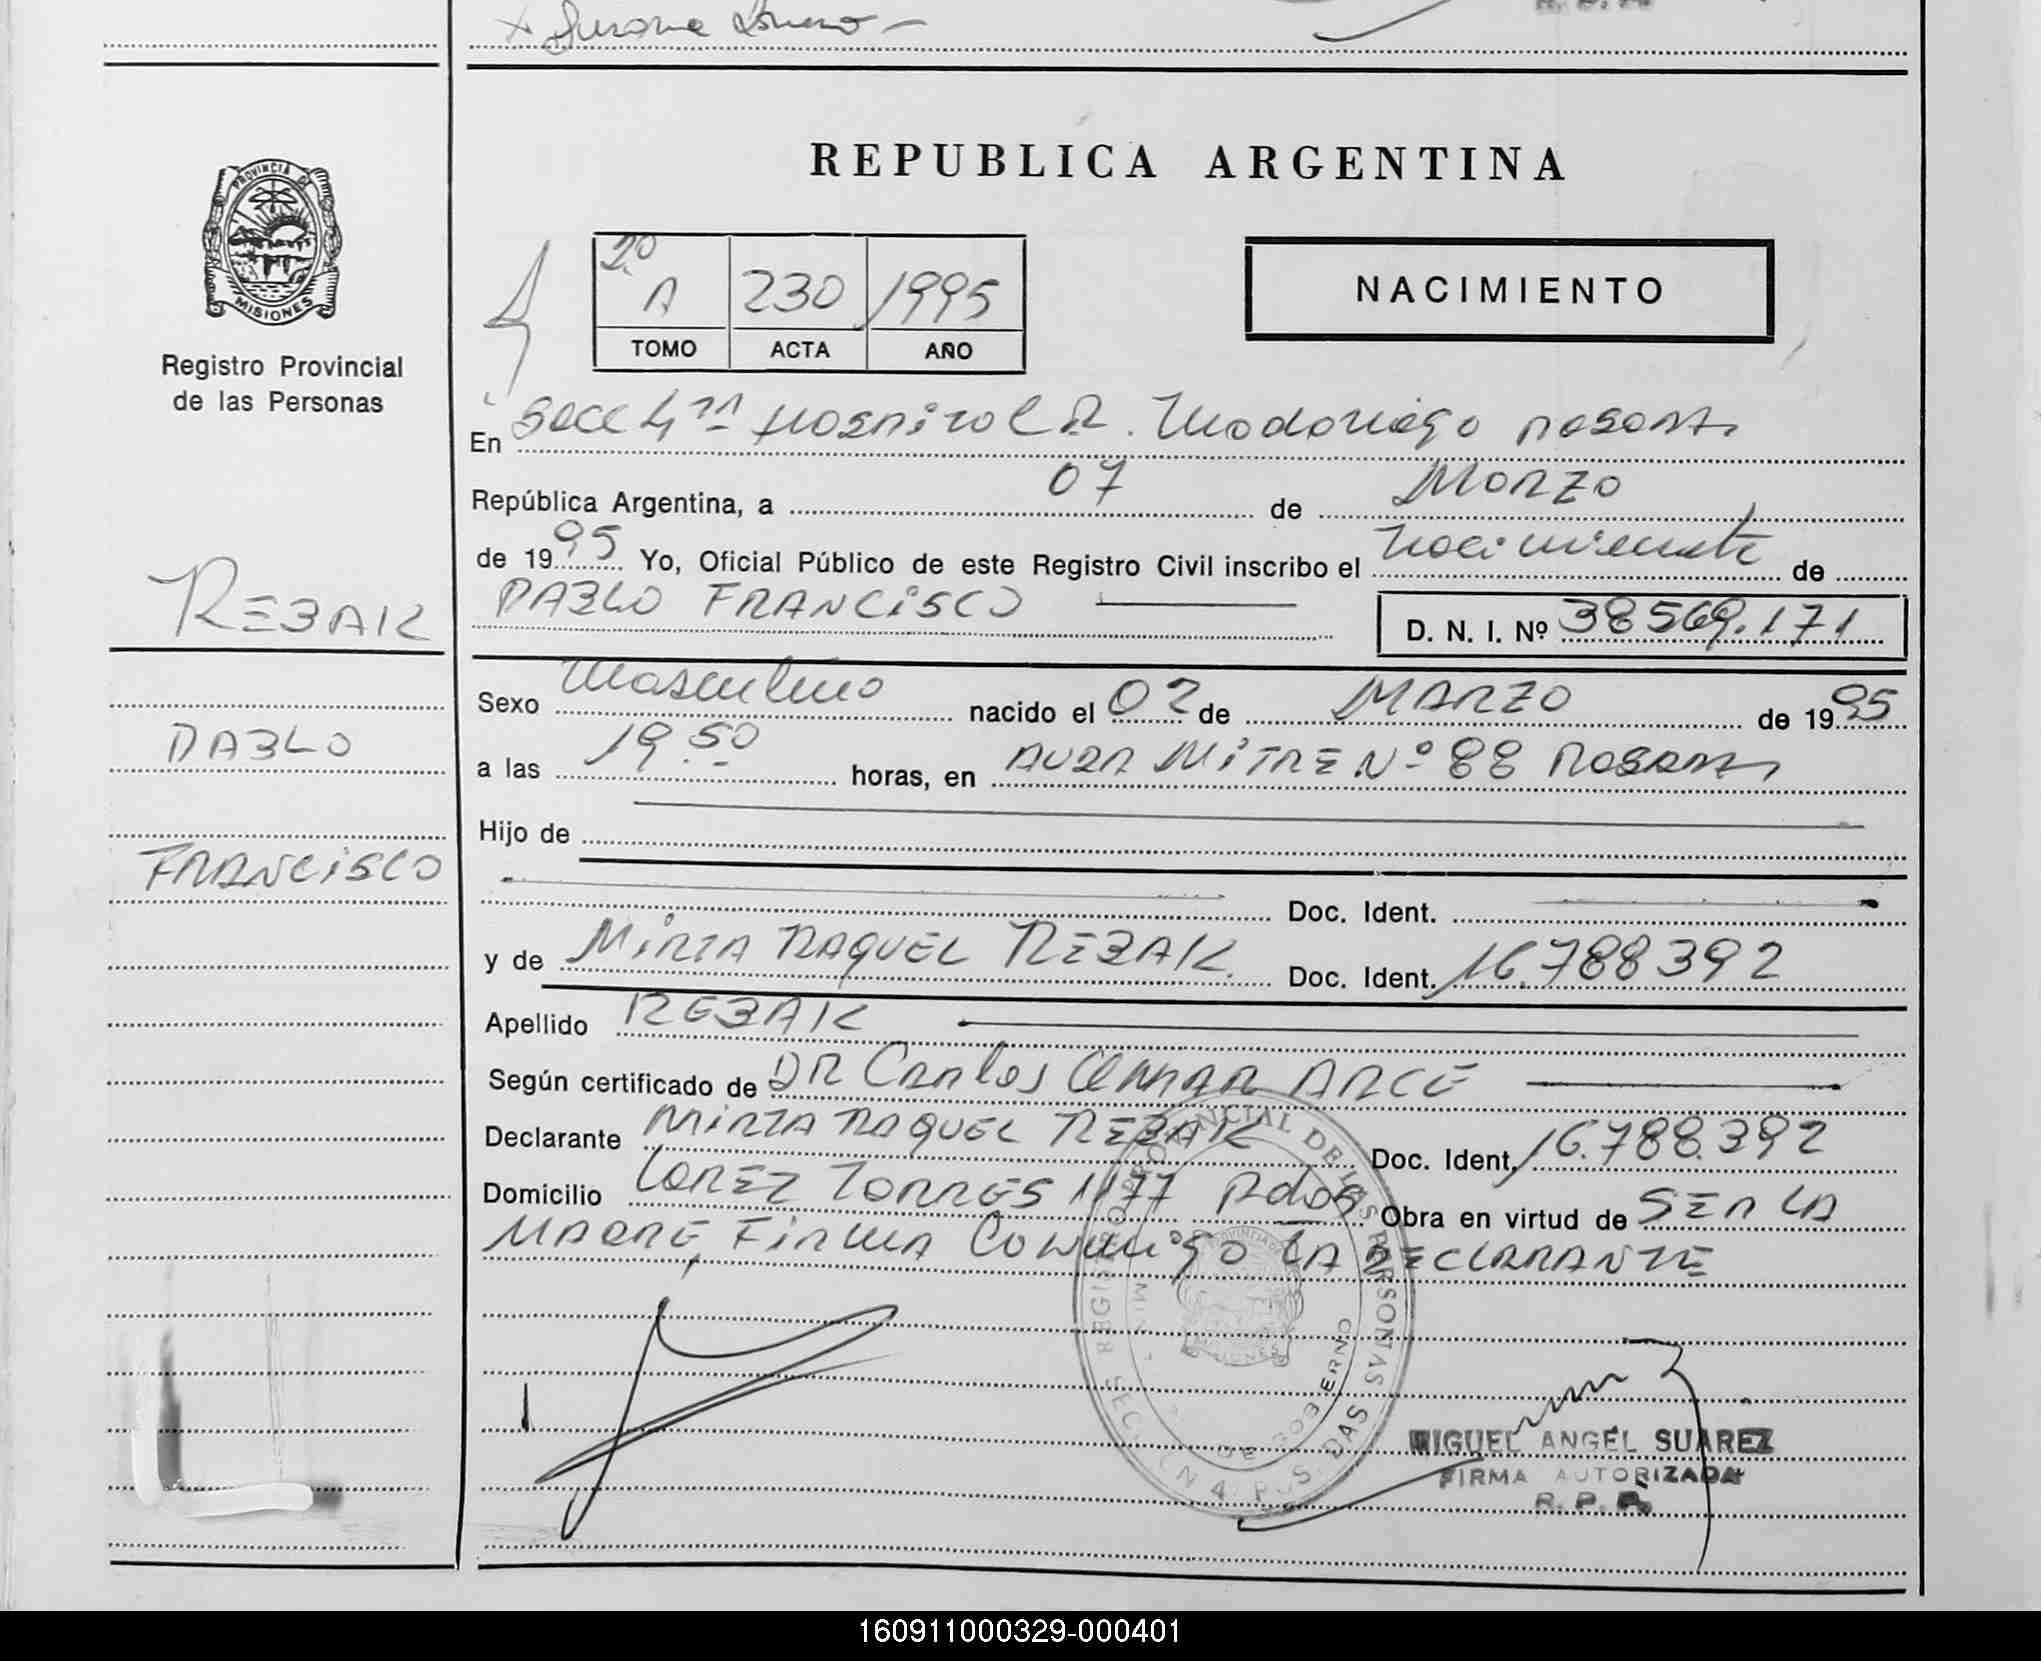 x Susana
REPUBLICA ARGENTINA
PROVINCIA DE
MISIONES
Registro Provincial
de las Personas
2º
A 230 1995
TOMO ACTA AÑO
NACIMIENTO
En Secc 4ta Hospital R. Madariaga Posadas
República Argentina, a 07 de Marzo
de 1995 Yo, Oficial Público de este Registro Civil inscribo el Nacimiento de
REBAK
PABLO FRANCISCO
D. N. I. Nº 38569.171
Sexo Masculino nacido el 02 de MARZO de 1995
PABLO
a las 19.50 horas, en AVDA MITRE Nº 88 POSADAS
Hijo de
FRANCISCO
Doc. Ident.
y de MIRTA RAQUEL REBAK. Doc. Ident. 16.788392
Apellido REBAK
Según certificado de DR Carlos OMAR ARCE
Declarante MIRTA RAQUEL REBAK Doc. Ident. 16.788.392
Domicilio LOPEZ TORRES 1177 Pdas Obra en virtud de SER LA
MADRE, FIRMA Conmigo LA DECLARANTE
REGISTRO PROVINCIAL DE LAS PERSONAS
DE GOBIERNO
MISIONES
MIGUEL ANGEL SUAREZ
FIRMA AUTORIZADA
R. P. P.
160911000329-000401